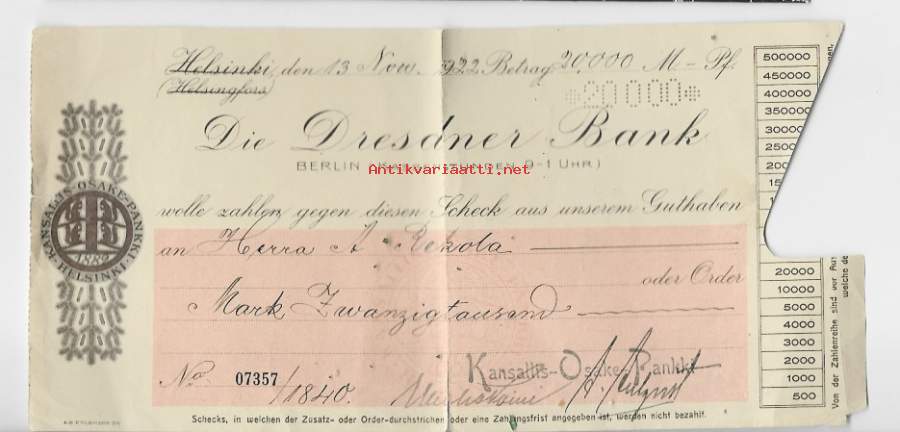 Helsinki, den 13 Nov. 1922 Betrag 20,000 M - Pf.
(Helsingfors)
*20000*
Die Dresdner Bank
BERLIN (KASSENSTUNDEN 9-1 UHR)
Antikvariaatti.net
wolle zahlen gegen diesen Scheck aus unserem Guthaben
an Herra A. Rekola
oder Order
Mark Zwanzigtausend
Kansallis-Osake-Pankki
No 07357 /1840.
Schecks, in welchen der Zusatz- oder Order-durchstrichen oder eine Zahlungsfrist angegeben ist, werden nicht bezahlt.
KANSALLIS-OSAKE-PANKKI
HELSINKI
1889
500000
450000
400000
350000
20000
10000
5000
4000
3000
2000
1000
500
Von der Zahlenreihe sind vor